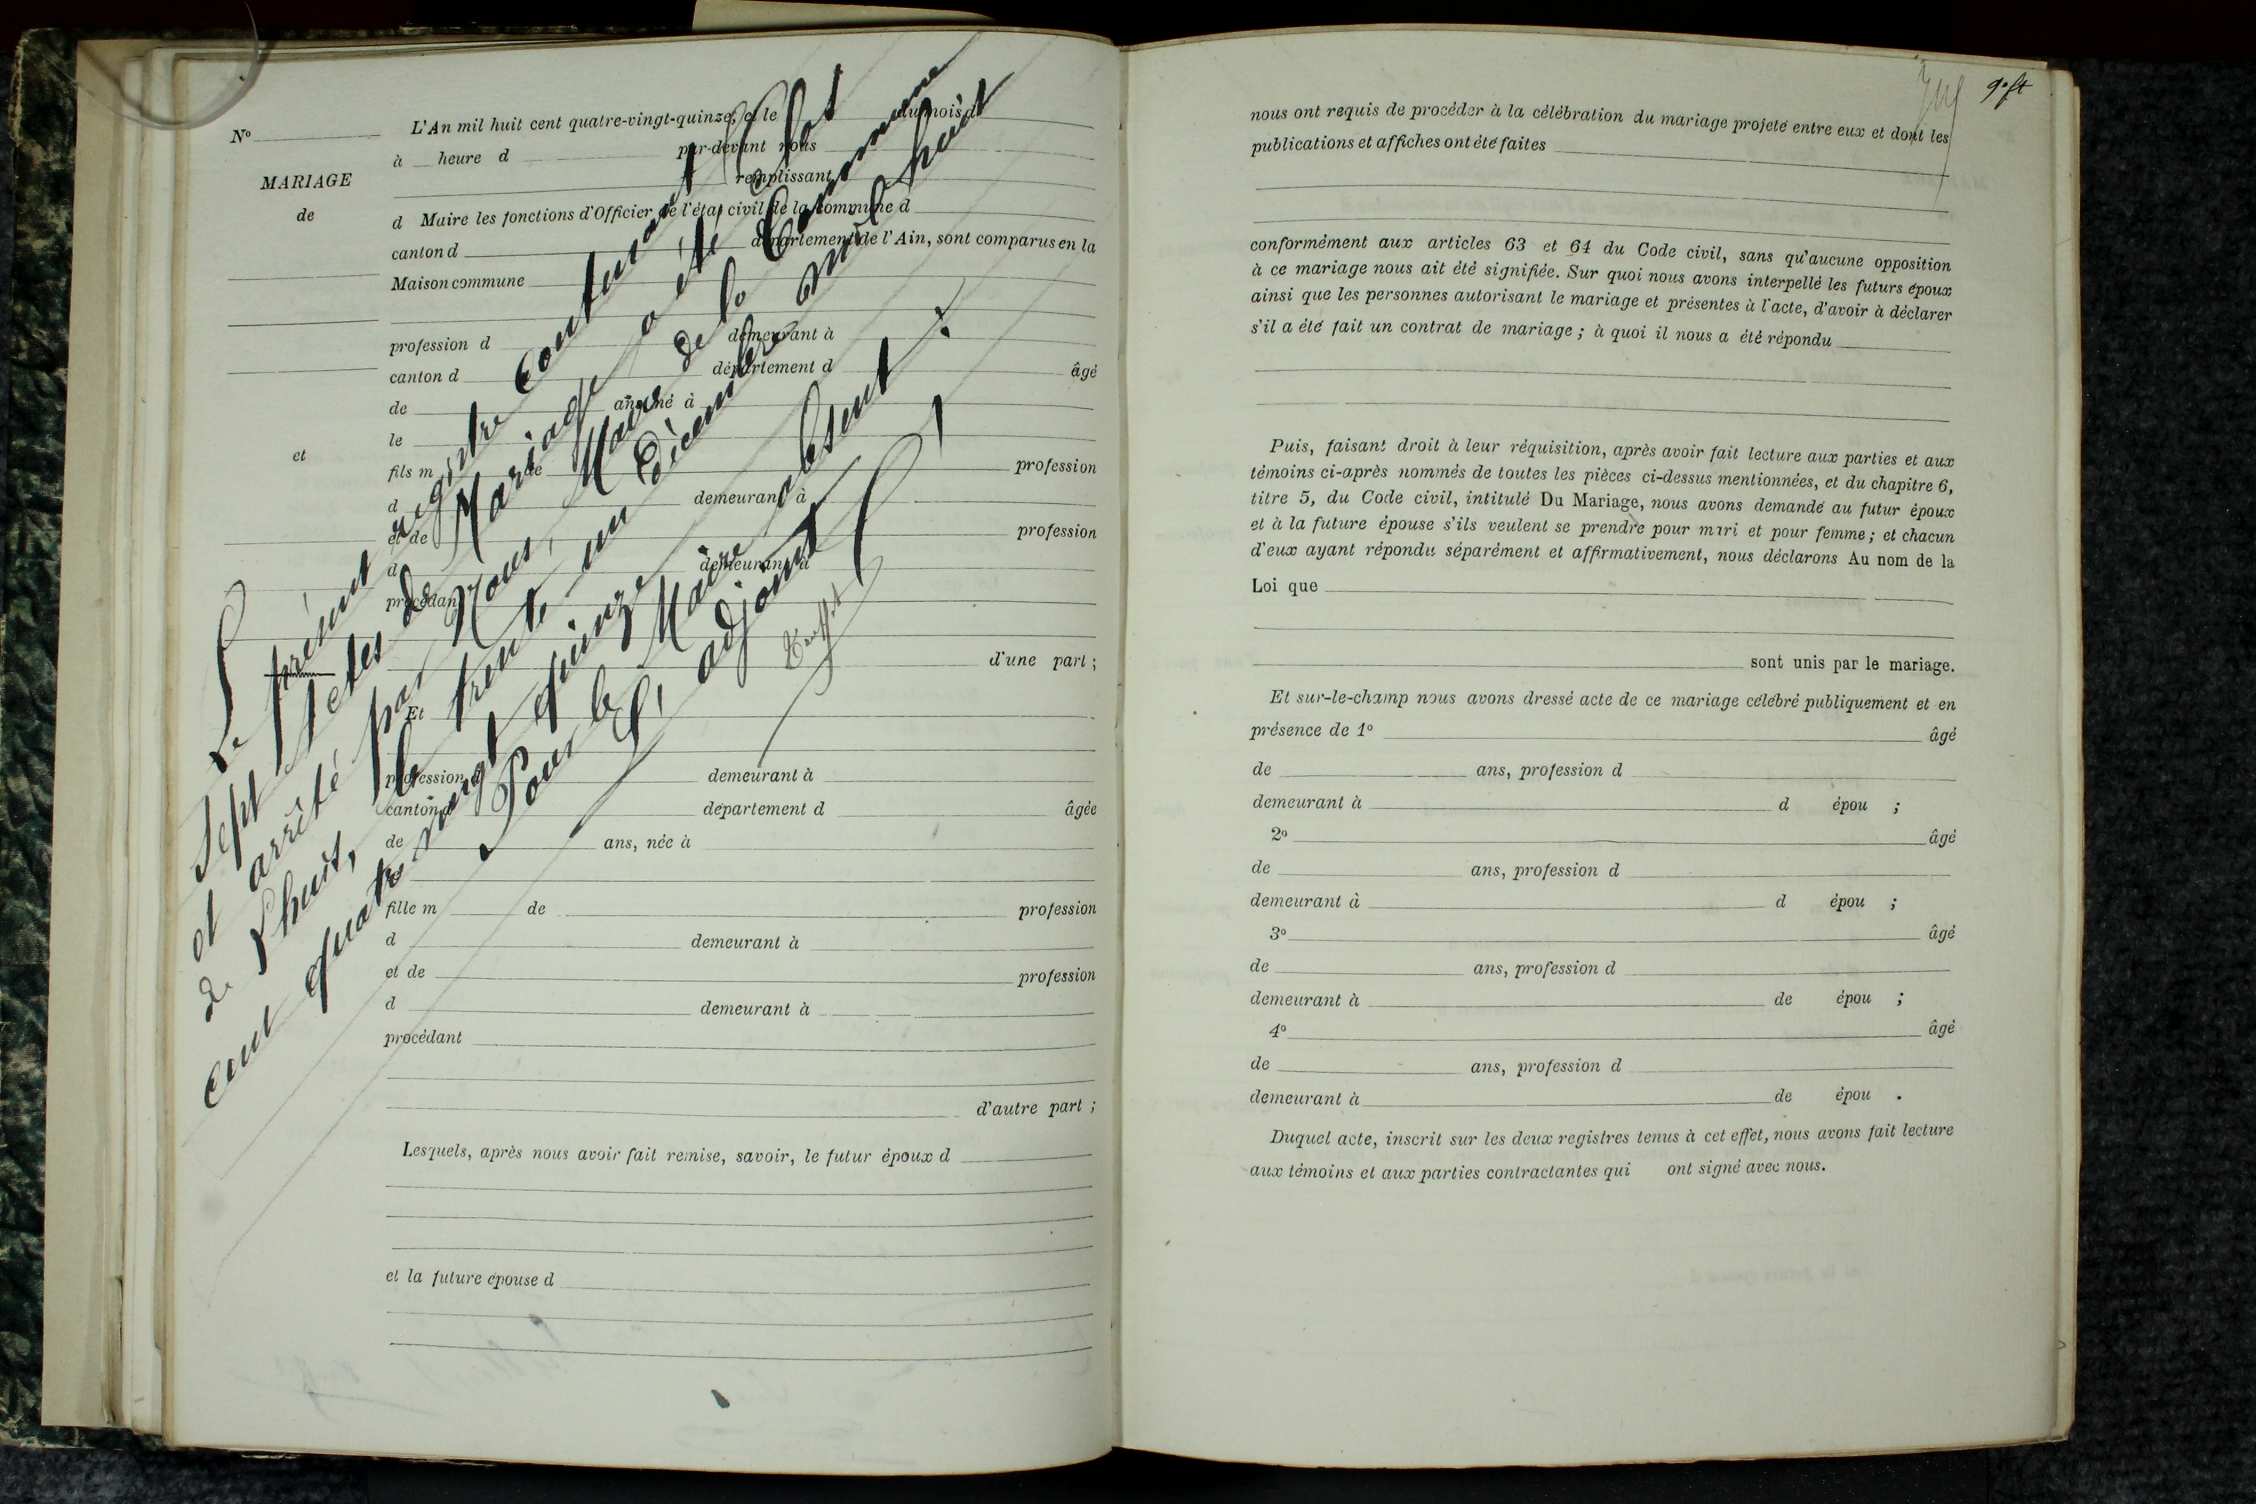 N° L'An mil huit cent quatre-vingt-quinze, et le du mois d
à heure d par-devant nous
MARIAGE
remplissant
de
d Maire les fonctions d'Officier de l'état civil de la commune d
canton d département de l'Ain, sont comparus en la
Maison commune
profession d demeurant à
canton d département d âgé
de ans, né à
le
et
fils m de profession
d demeurant à
et de profession
d demeurant à
procédant
d'une part ;
Et
profession d demeurant à
canton d département d âgée
de ans, née à
le
fille m de profession
d demeurant à
et de profession
d demeurant à
procédant
d'autre part ;
Lesquels, après nous avoir fait remise, savoir, le futur époux d
et la future épouse d
Le présent registre contenant
sept actes de Mariage a été clos
et arrêté par Nous, Maire de la Commune
de Lhuis, le trente un décembre mil huit
cent quatre vingt quinze
Pour le Maire absent :
L'adjoint
9e ft
nous ont requis de procéder à la célébration du mariage projeté entre eux et dont les
publications et affiches ont été faites
conformément aux articles 63 et 64 du Code civil, sans qu'aucune opposition
à ce mariage nous ait été signifiée. Sur quoi nous avons interpellé les futurs époux
ainsi que les personnes autorisant le mariage et présentes à l'acte, d'avoir à déclarer
s'il a été fait un contrat de mariage ; à quoi il nous a été répondu
Puis, faisant droit à leur réquisition, après avoir fait lecture aux parties et aux
témoins ci-après nommés de toutes les pièces ci-dessus mentionnées, et du chapitre 6,
titre 5, du Code civil, intitulé Du Mariage, nous avons demandé au futur époux
et à la future épouse s'ils veulent se prendre pour mari et pour femme ; et chacun
d'eux ayant répondu séparément et affirmativement, nous déclarons Au nom de la
Loi que
sont unis par le mariage.
Et sur-le-champ nous avons dressé acte de ce mariage célébré publiquement et en
présence de 1° âgé
de ans, profession d
demeurant à d épou ;
2° âgé
de ans, profession d
demeurant à d épou ;
3° âgé
de ans, profession d
demeurant à de épou ;
4° âgé
de ans, profession d
demeurant à de épou .
Duquel acte, inscrit sur les deux registres tenus à cet effet, nous avons fait lecture
aux témoins et aux parties contractantes qui ont signé avec nous.